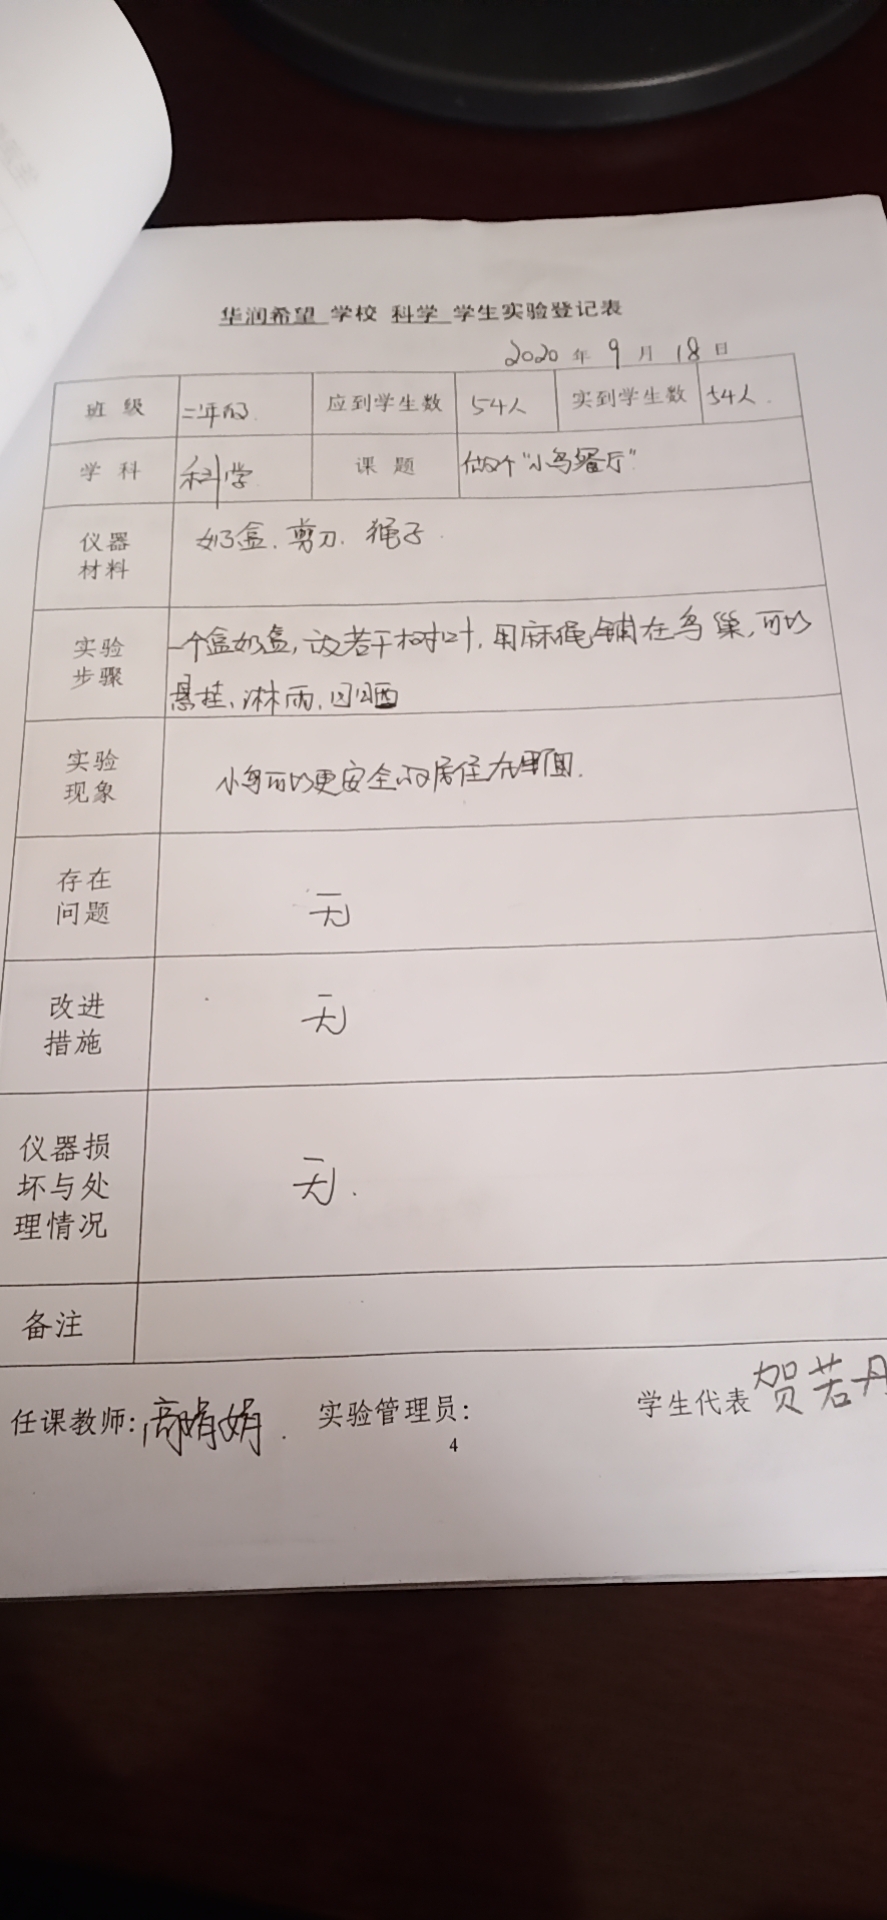 华润希望 学校 科学 学生实验登记表
2020 年 9 月 18 日
班 级 二年级 应到学生数 54人 实到学生数 54人.
学 科 科学 课 题 做个“小鸟餐厅”
仪器
材料
奶盒. 剪刀. 绳子.
实验
步骤
一个盒奶盒, 放若干树叶, 用麻绳铺在鸟巢, 可以
悬挂、淋雨, 日晒
实验
现象
小鸟可以更安全的居住在里面.
存在
问题
无
改进
措施
无
仪器损
坏与处
理情况
无.
备注
任课教师: 高娟娟. 实验管理员: 学生代表 贺若丹
4